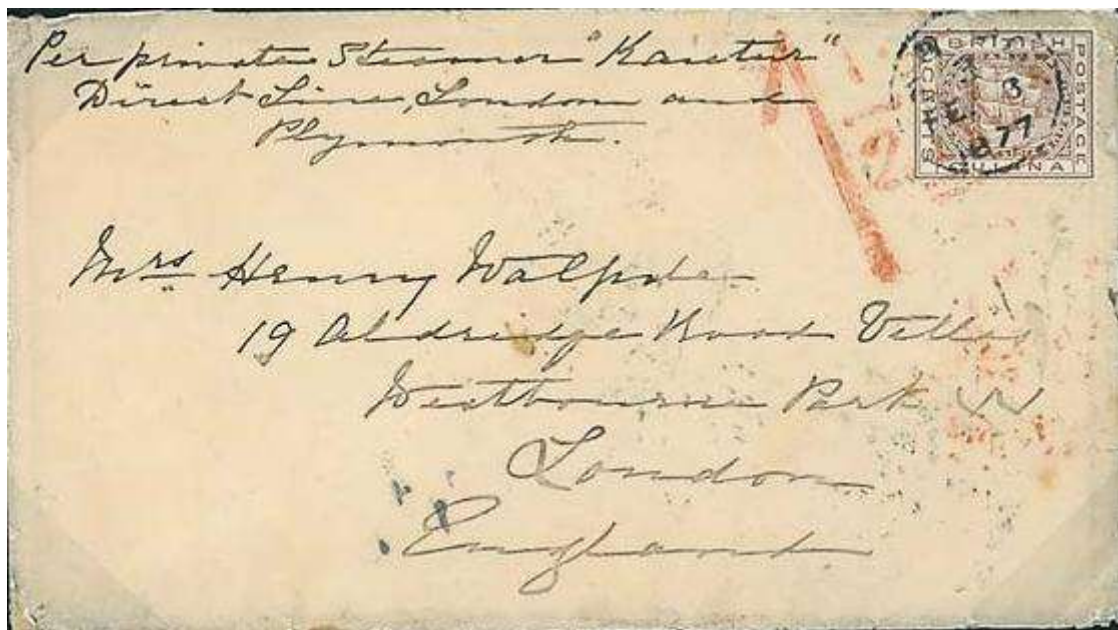 Per private Steamer "
Direct Line, London and
Plymouth.
BRITISH
POSTAGE
GUIANA
6 CENTS
3
1877
12
1
Mrs Henry Walpole
19 Aldridge Road Villas
Westbourne Park W
London
England